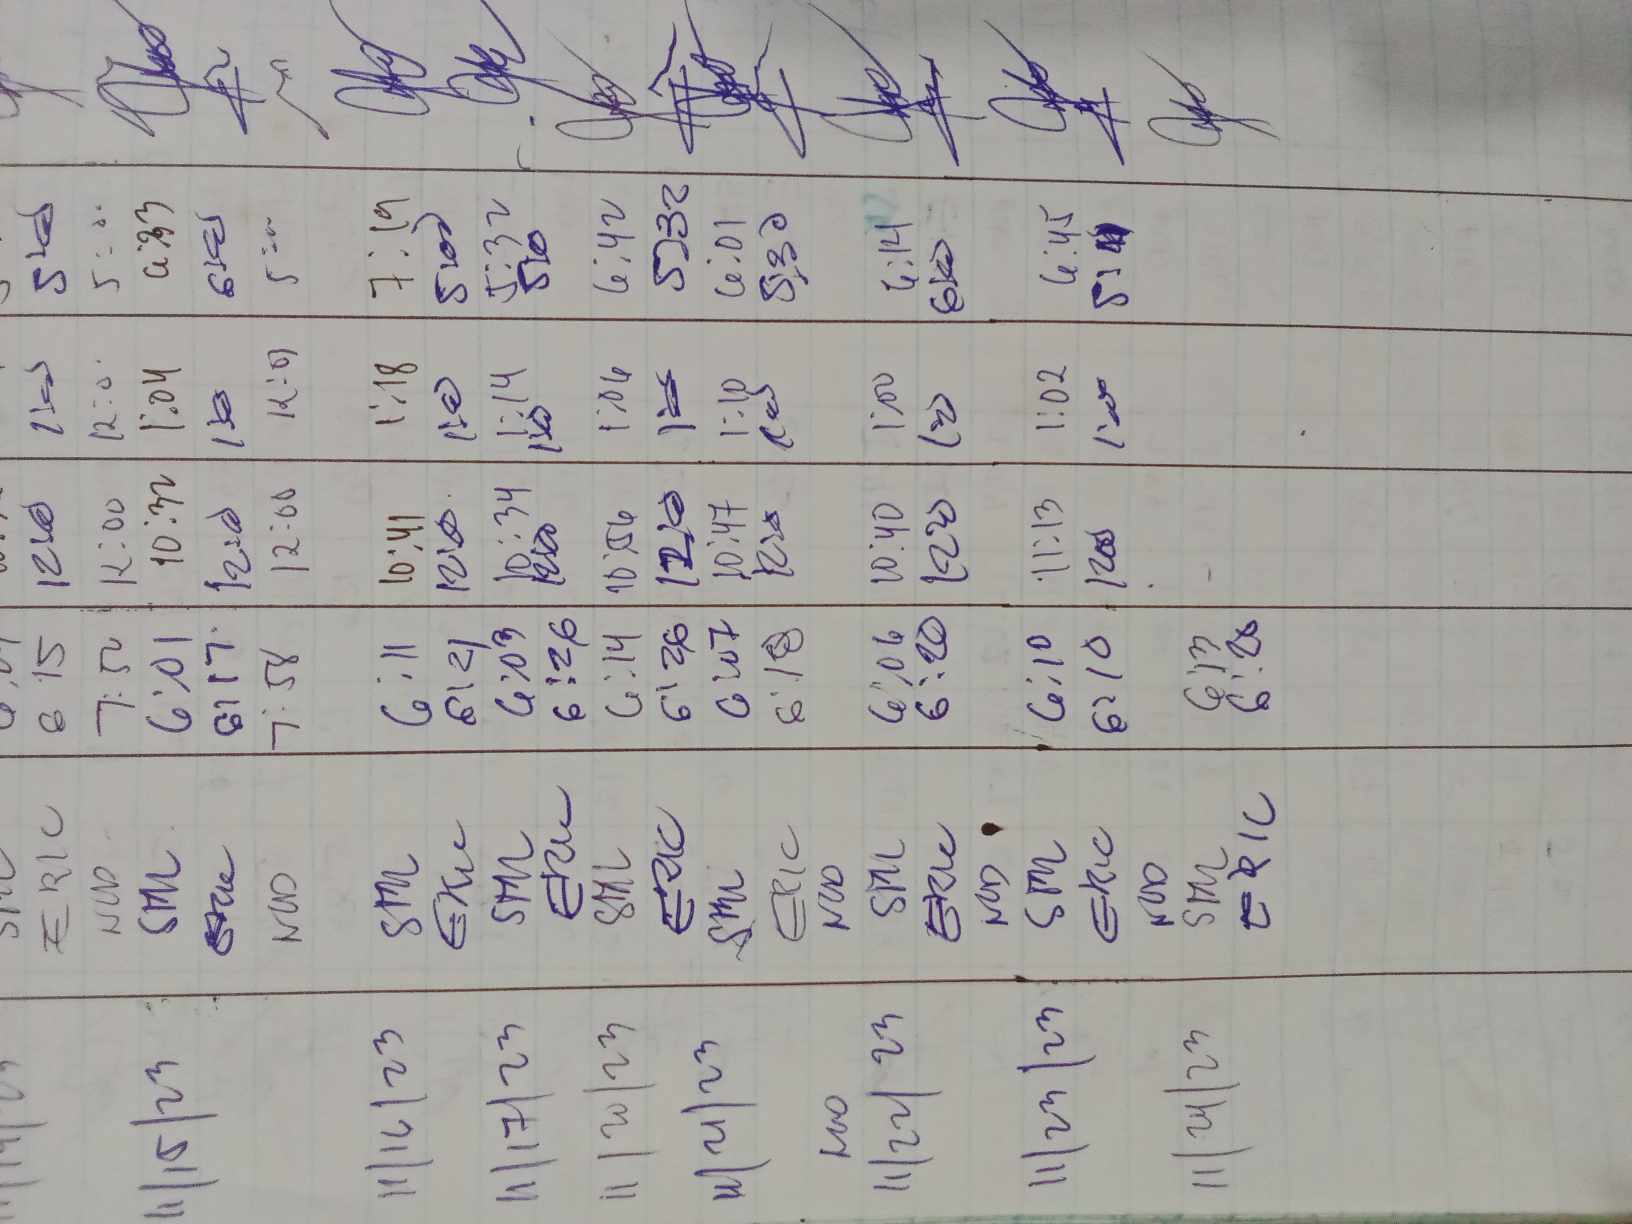 ERIC 6:15 12:00 1:00 5:00
NOO 7:50 12:00 12:0 5:00
11/15/23 SML 6:01 10:32 1:04 6:33
Eric 6:17 12:00 1:00 6:00
NOO 7:58 12:00 12:01 5:00
11/16/23 SML 6:11 10:41 1:18 7:19
ERIC 6:21 12:00 1:00 5:00
11/17/23 SML 6:03 10:34 1:14 5:32
ERIC 6:26 12:00 1:00 5:00
11/20/23 SML 6:14 10:56 1:06 6:42
ERIC 6:26 12:10 1:00 5:32
11/21/23 SML 6:07 10:47 1:10 6:01
ERIC 6:18 12:00 1:00 5:30
NOO NOO
11/22/23 SML 6:06 10:40 1:00 6:14
ERIC 6:20 6:00
NOO
11/23/23 SML 6:10 11:13 1:02 6:45
ERIC 6:10 12:00 1:00
NOO
11/24/23 SML 6:13
ERIC 6:20